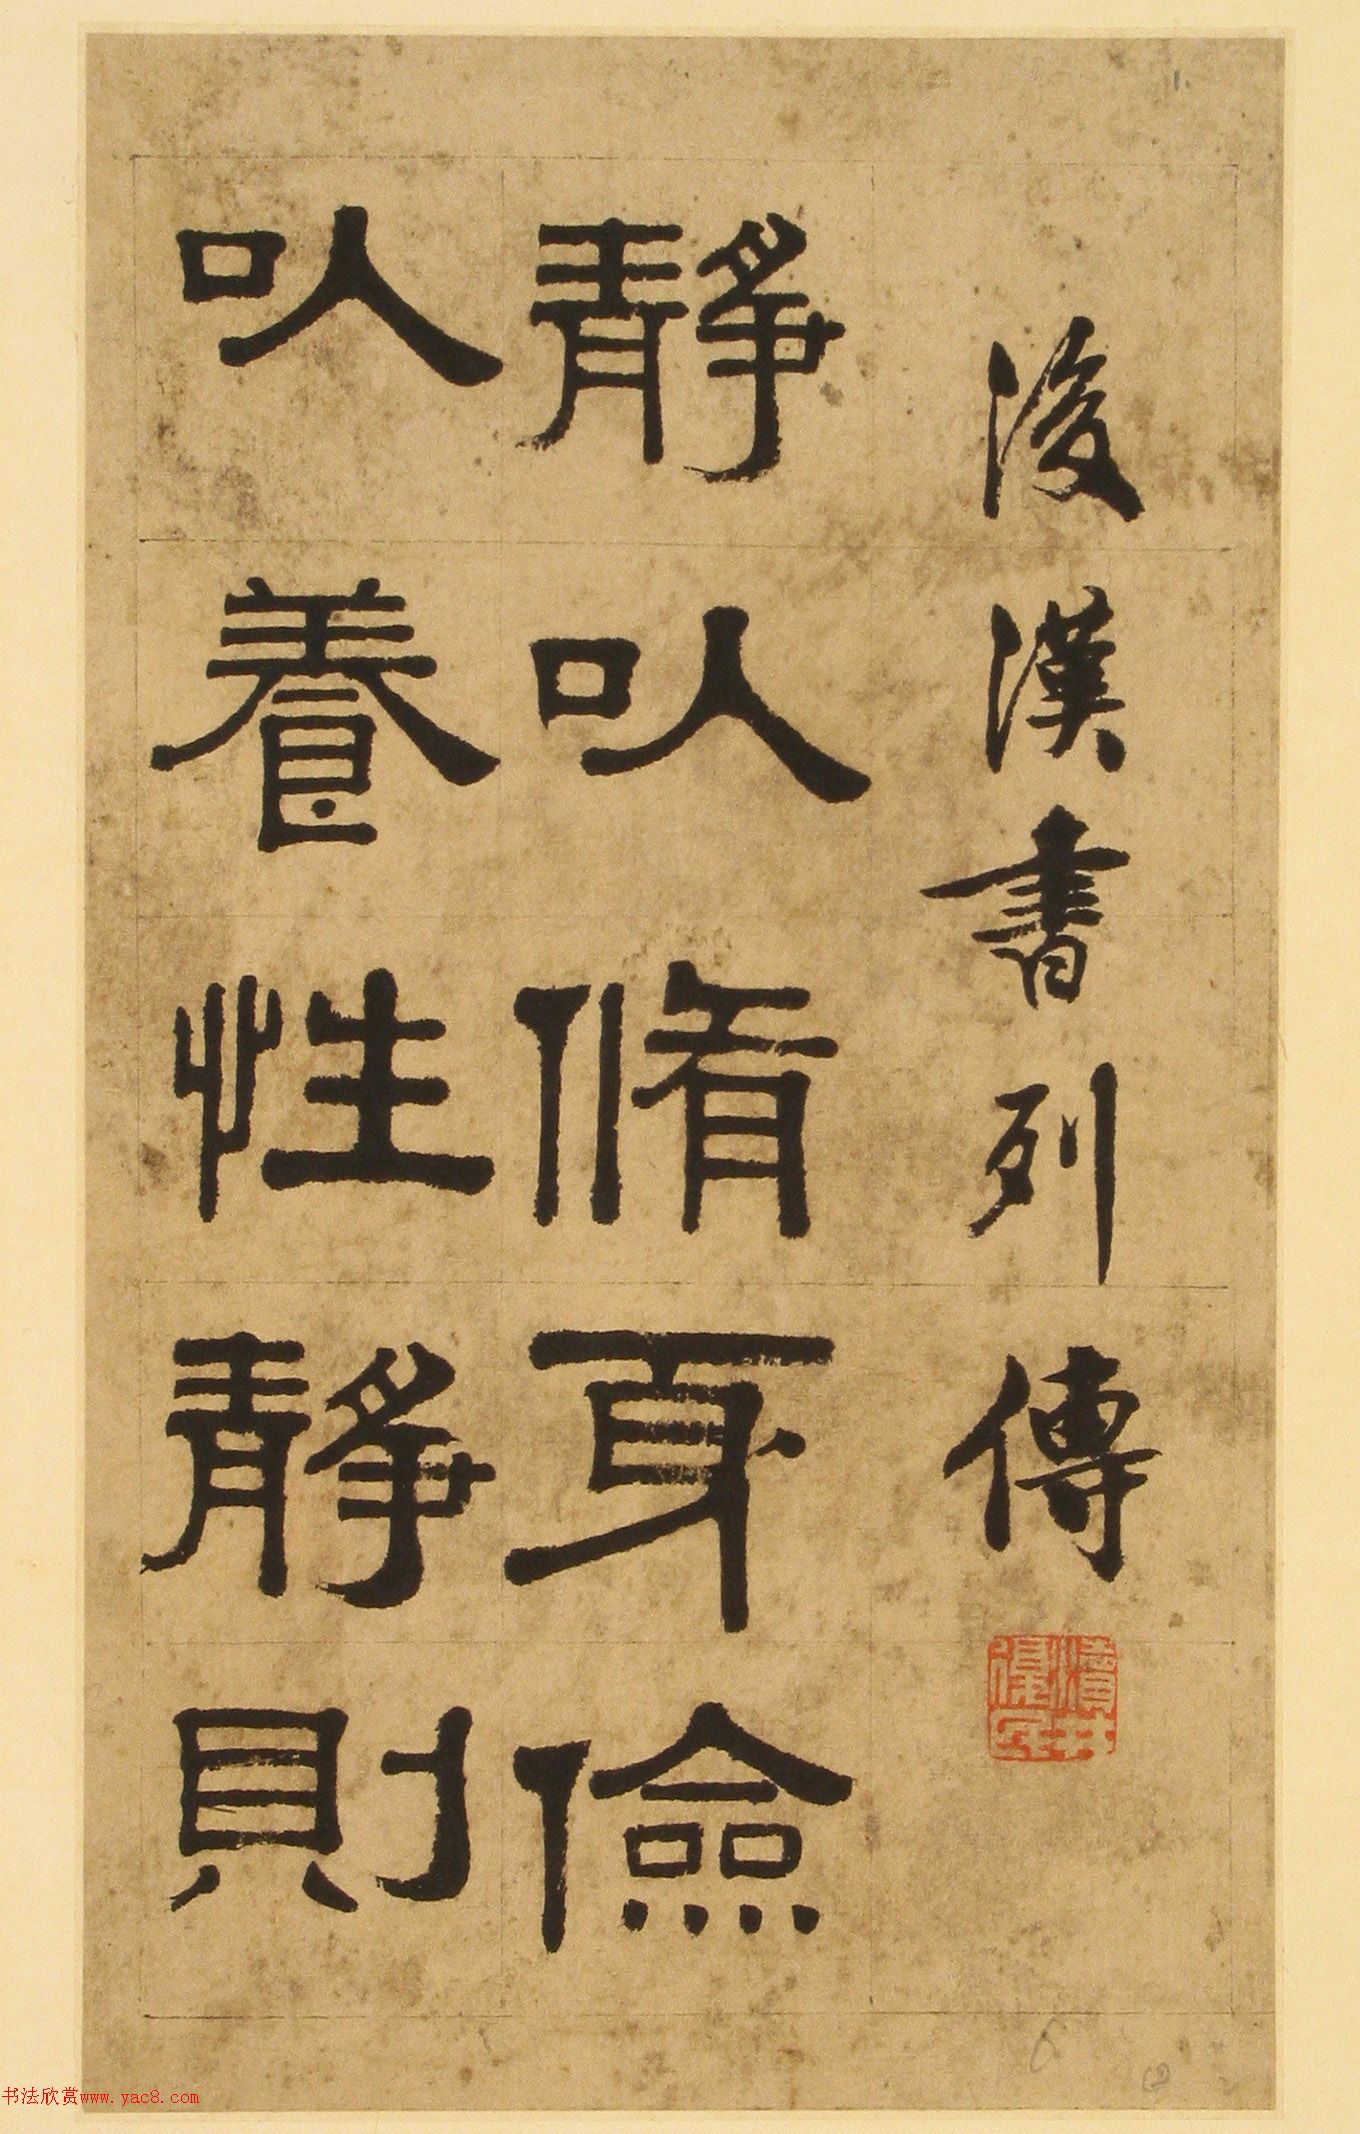 後漢書列傳
靜以脩身儉
以養性靜則
书法欣赏www.yac8.com